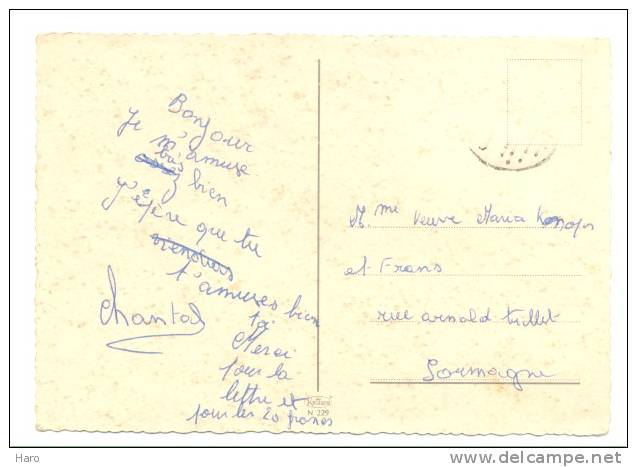 Bonjour
Je m'amuse
bien
J'espère que tu
t'amuses bien
toi
Merci
pour la
lettre et
pour les 20 francs
Chantal
Mme Veuve Maria
et Frans
rue arnold trillet
Soumagne
N 229
Haro
www.delcampe.net